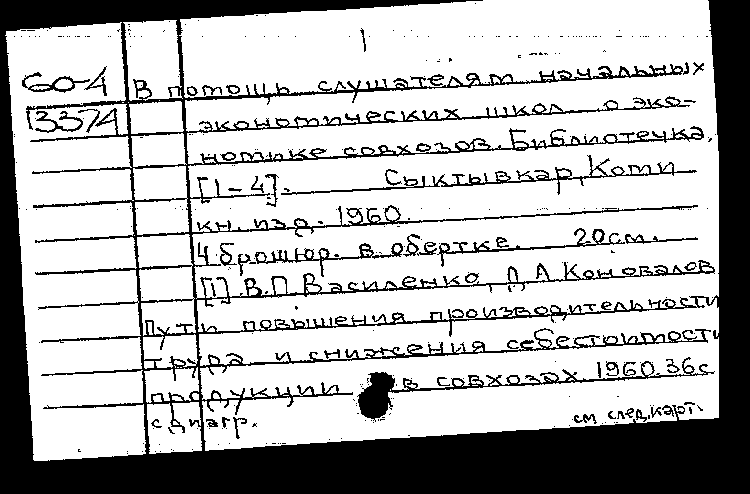 1
60-4 В помощь слушателям начальных
13374 экономических школ о эко-
номике совхозов. Библиотечка.
[1-4]. Сыктывкар, Коми
кн. изд. 1960.
4 брошюр. в обертке. 20см.
[1]. В.П. Василенко, Д.А Коновалов
Пути повышения производительности
труда и снижения себестоимости
продукции в совхозах 1960. 36с
с диагр.
см след. карт.